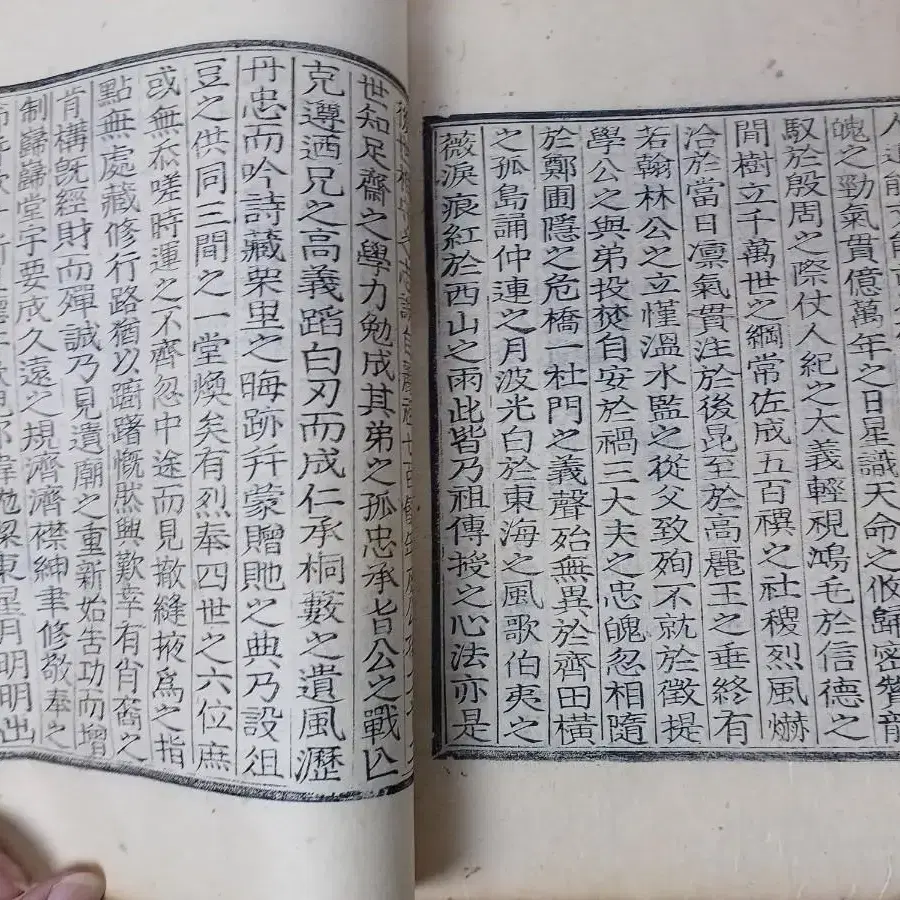 魄之勁氣貫億萬年之日星識天命之攸歸密贊龍
馭於殷周之際仗人紀之大義輕視鴻毛於信德之
間樹立千萬世之綱常佐成五百禩之社稷烈風爀
洽於當日凛氣貫注於後昆至於高麗王之垂終有
若翰林公之立慬溫水監之從父致殉不就於徵提
學公之與弟投焚自安於禍三大夫之忠魄忽相隨
於鄭圃隱之危橋一杜門之義聲始無異於齊田橫
之孤島誦仲連之月波光白於東海之風歌伯夷之
薇淚痕紅於西山之雨此皆乃祖傳授之心法亦是
世知足齋之學力勉成其弟之孤忠承旨公之戰亡
克遵迺兄之高義蹈白刃而成仁承桐藪之遺風瀝
丹忠而吟詩藏栗里之晦跡幷蒙贈貤之典乃設俎
豆之供同三閭之一堂煥矣有烈奉四世之六位庶
或無忝嗟時運之不齊忽中途而見撤縫掖爲之指
點無處藏修行路猶以躕躇慨然興歎幸有肖裔之
肯構旣經財而殫誠乃見遺廟之重新始告功而增
制巋巋堂宇要成久遠之規濟濟襟紳聿修敬奉之
梁東星月明明出